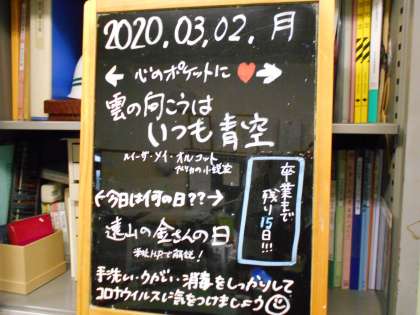 2020.03.02.月
← 心のポケットに ❤ →
雲の向こうは
いつも青空
ルイーザ・メイ・オルコット
アメリカの小説家
←今日は何の日??→
遠山の金さんの日
卒業まで
残り15日!!!
手洗い・うがい・消毒をしっかりして
コロナウイルスに気をつけましょう☺